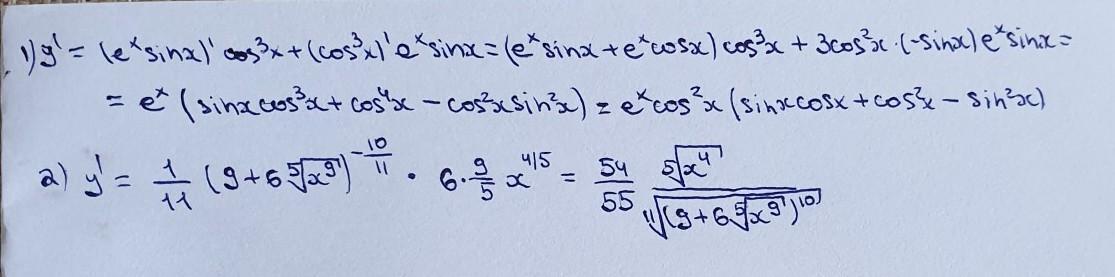 1) y' = (eˣ sinx)' cos³x + (cos³x)' eˣ sinx = (eˣ sinx + eˣ cosx) cos³x + 3cos²x · (-sinx) eˣ sinx =
= eˣ (sinx cos³x + cos⁴x - cos²x sin²x) = eˣ cos²x (sinx cosx + cos²x - sin²x)
2) y' = 1/11 (9 + 6 ⁵√(x⁹))^(-10/11) · 6 · 9/5 x^(4/5) = 54/55 ⁵√(x⁴) / ¹¹√((9 + 6 ⁵√(x⁹))¹⁰)